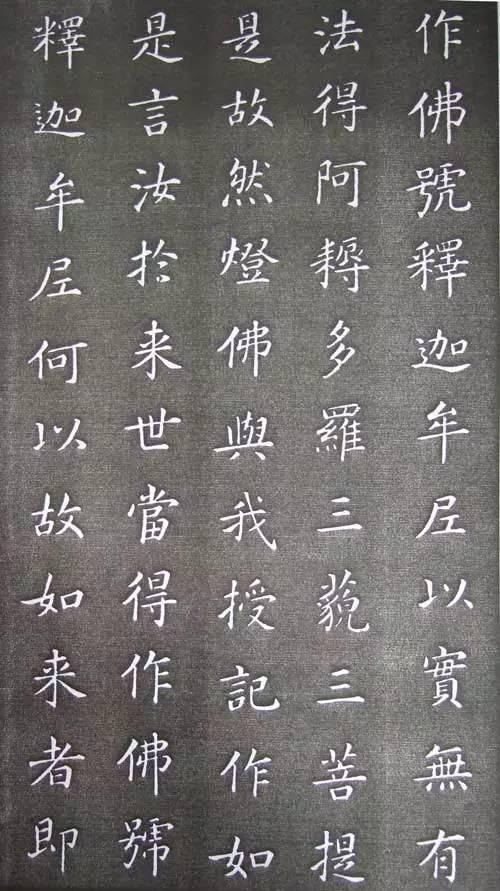 作佛號釋迦牟尼以實無有
法得阿耨多羅三藐三菩提
是故然燈佛與我授記作如
是言汝扵来世當得作佛號
釋迦牟尼何以故如来者即